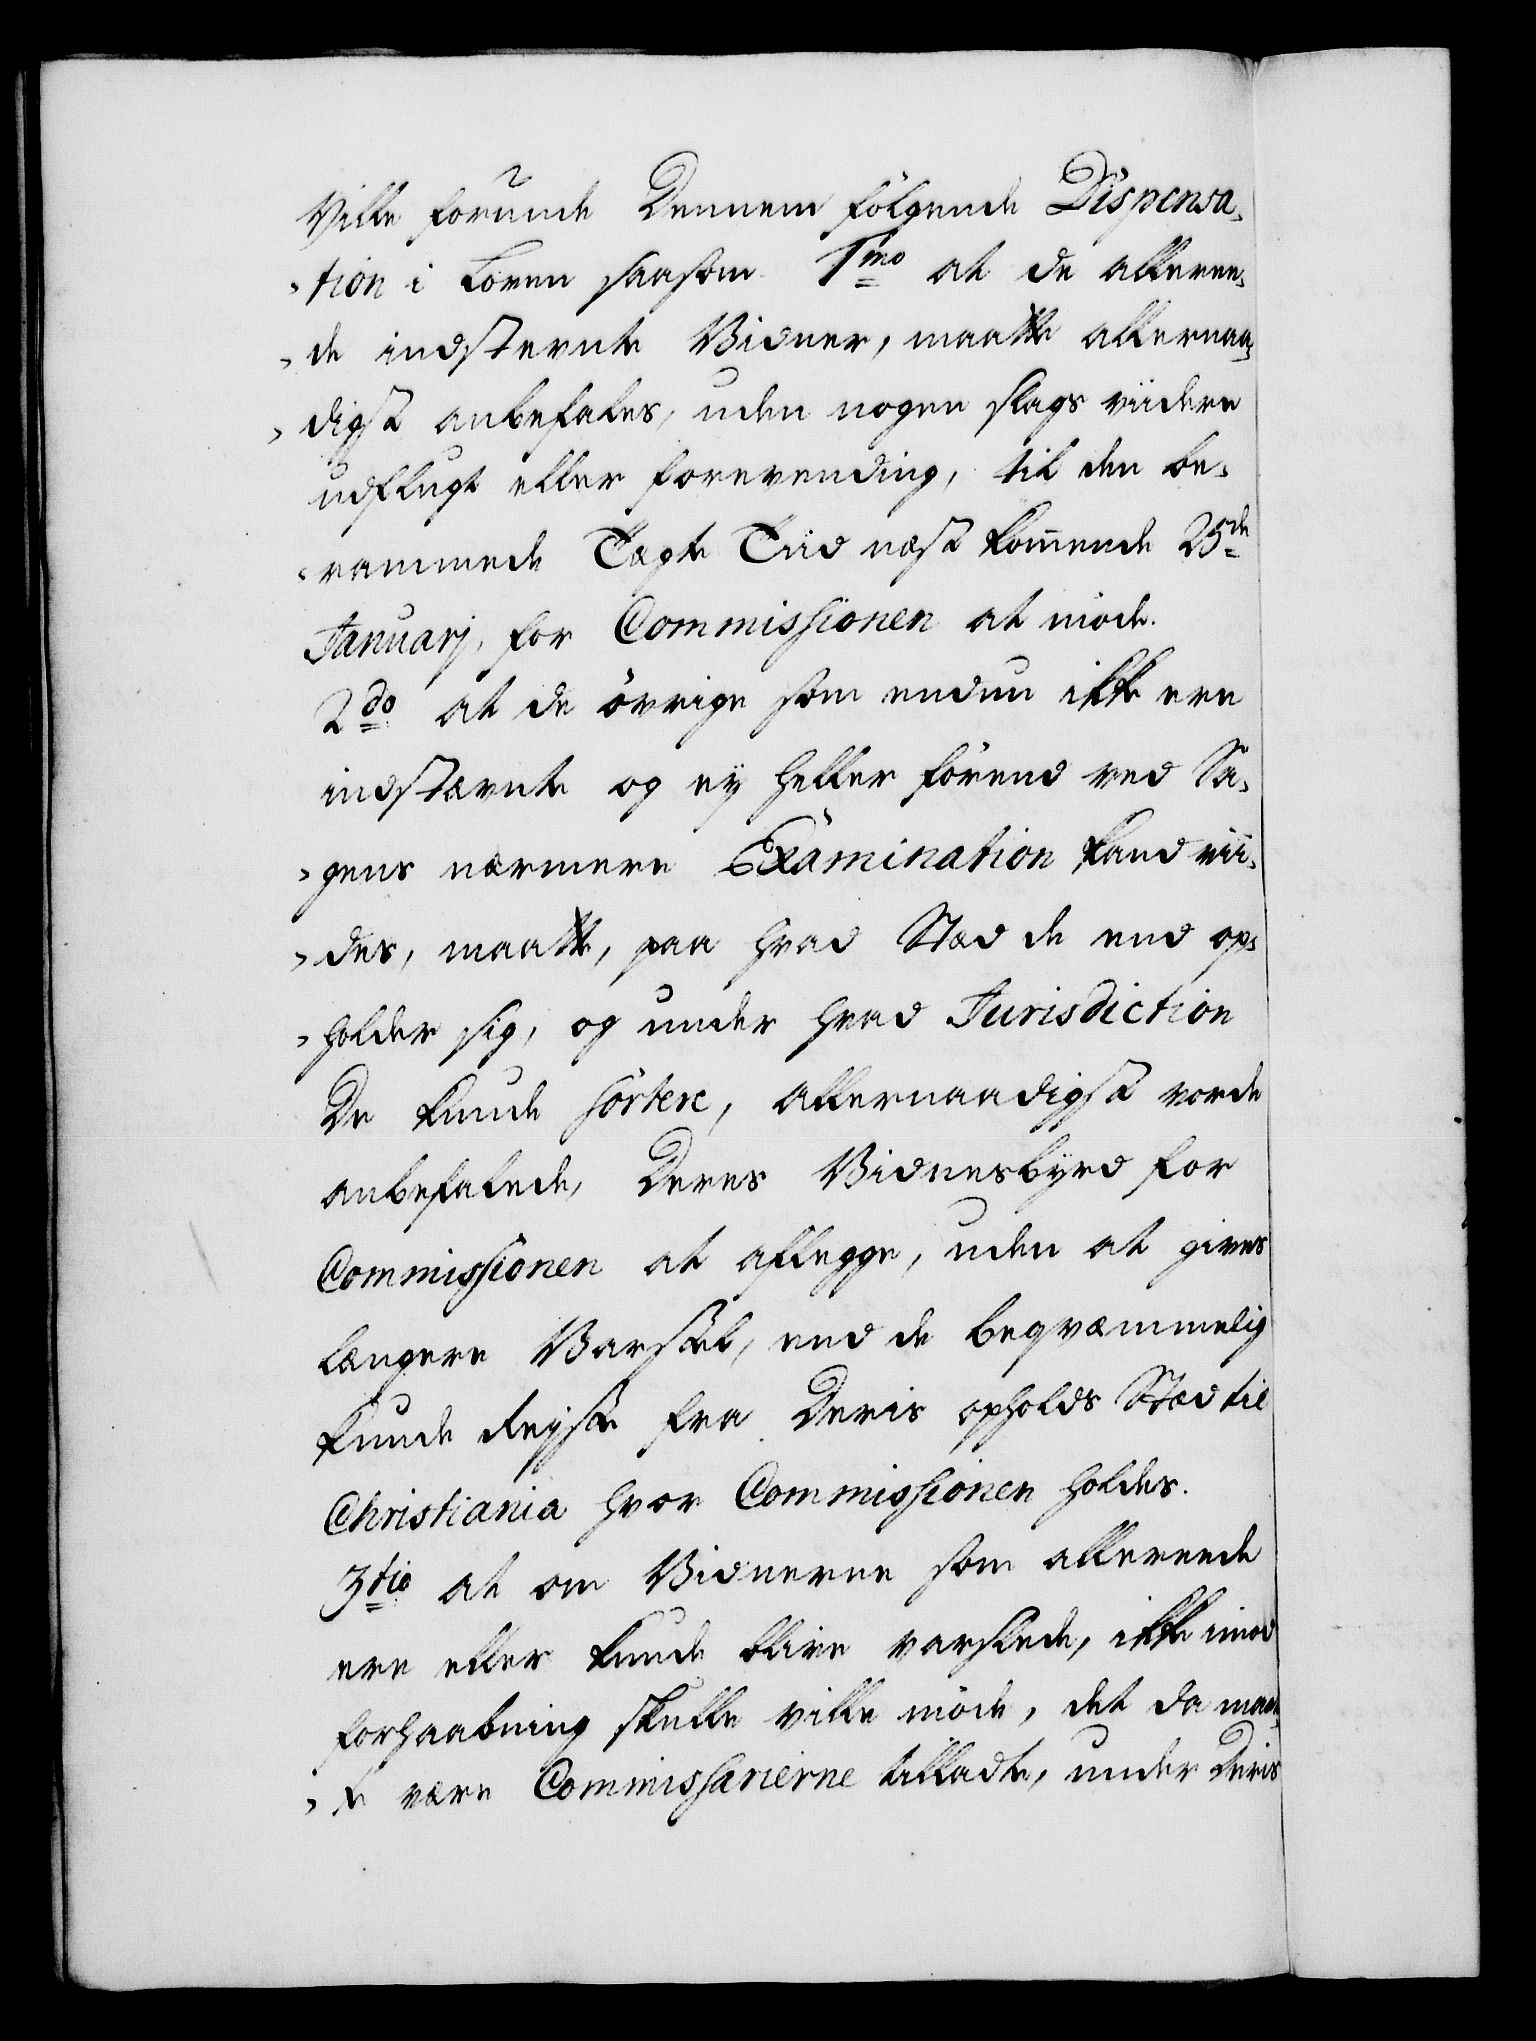 Ville forunde Dennem fölgende Dispensa-
-tion i Loven saasom 1mo at de alleree-
-de indstevnte Vidner, maatte allernaa-
-digst anbefales, uden nogen slags viidere
udflugt eller forevending, til den be-
-rammede Tægte Tiid næst kom̄ende 25de
Januarj, for Commissionen at möde.
2do at de övrige som endnu ikke ere
indstævnte og ey heller förend ved Sa-
-gens nærmere Examination kand vii-
-des, maatte, paa hvad Stæd de end op-
-holder sig, og under hvad Jurisdiction
De kunde sortere, allernaadigst vorde
anbefalede, Deres Vidnesbyrd for
Commissionen at aflegge, uden at gives
længere Varssel, end de beqvæmmelig
kunde Reyse fra Deris opholds Stæd til
Christiania hvor Commissionen holdes.
3tio at om Vidnerne som allereede
ere eller kunde blive varslede, ikke imod
forhaabning skulle ville möde, det da maat-
-te være Commissarierne tilladte, under Deris